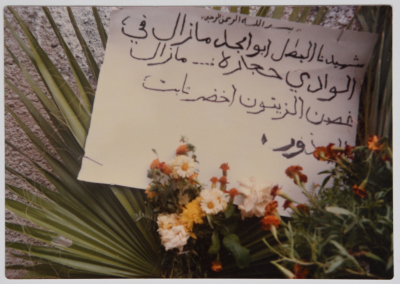 بسم الله الرحمن الرحيم
شهيدنا البطل أبو امجد مازال في
الوادي حجارة .... مازال
غصن الزيتون اخضر ثابت
الجذور .